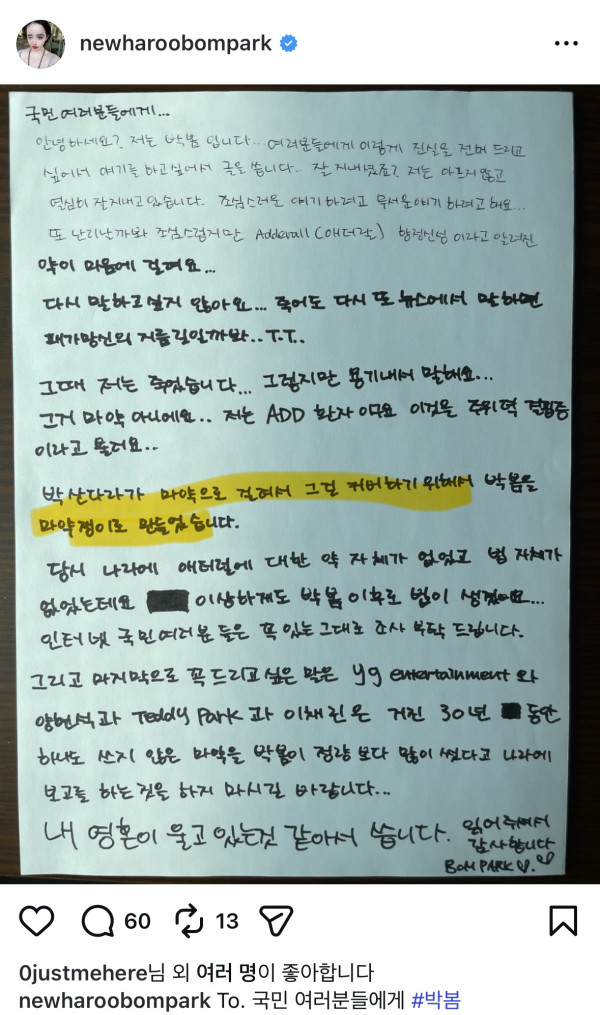 newharoobompark
국민 여러분들에게...
안녕하세요? 저는 박봄 입니다... 여러분들에게 이렇게 진실을 전해 드리고
싶어서 얘기를 하고싶어서 글을 씁니다.. 잘 지내셨죠? 저는 아프지 않고
열심히 잘지내고 있습니다. 조심스러운 얘기 하려고 무서운얘기 하려고 해요...
또 난리날까봐 조심스럽지만 Adderall (애더럴) 향정신성 이라고 알려진
약이 마음에 걸려요...
다시 말하고 싶지 않아요... 죽어도 다시 또 뉴스에서 말하면
패가망신의 지름길일까봐.. T.T..
그때 저는 죽었습니다... 그렇지만 용기내서 말해요...
그거 마약 아니에요.. 저는 ADD 환자 이구요 이것은 주위력 결핍증
이라고 불려요..
박산다라가 마약으로 걸려서 그걸 커버하기 위해서 박봄을
마약쟁이로 만들었습니다.
당시 나라에 애터럴에 대한 약 자체가 없었고 법 자체가
없었는데요 이상하게도 박봄 이후로 법이 생겼어요...
인터넷 국민여러분 들은 꼭 있는그대로 조사 부탁 드립니다.
그리고 마지막으로 꼭 드리고 싶은 말은 yg entertainment 와
양현석과 Teddy Park 과 이채린은 거진 30년 동안
하나도 쓰지 않은 마약을 박봄이 정량 보다 많이 썼다고 나라에
보고를 하는것을 하지 마시길 바랍니다...
내 영혼이 울고 있는것 같아서 씁니다. 읽어주셔서
감사합니다
BOM PARK ♡.♡
60 13
0justmehere님 외 여러 명이 좋아합니다
newharoobompark To. 국민 여러분들에게 #박봄